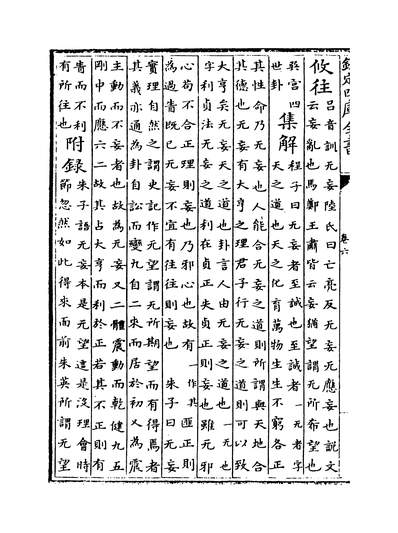 欽定四庫全書
卷六
攸往
呂音訓无妄陸氏曰亡亮反无妄无應妄也說文
云妄亂也馬鄭王肅皆云妄猶望謂无所希望也
巽宮四
世卦
集解
程子曰无妄者至誠也至誠者一无者字
天之道也天之化育萬物生生不窮各正
其性命乃无妄也人能合无妄之道則所謂與天地合
其德也无妄有大亨之理君子行无妄之道則可以致
大亨矣无妄天之道也卦言人由无妄之道也一无也
字利貞法无妄之道利在貞正失貞正則妄也雖无邪
心茍不合正理則妄也乃邪心也故有一作其匪正則
為過眚既已无妄不宜有往往則妄也 朱子曰无妄
實理自然之謂史記作无望謂无所期望而有得焉者
其義亦通為卦自訟而變九自二來而居於初又為震
主動而不妄者也故為无妄又二體震動而乾健九五
剛中而應六二故其占大亨而利於正若其不正則有
眚而不利
有所往也
附録
朱子語无妄本是无望這是沒理會時
節忽然如此得來面前朱英所謂无望